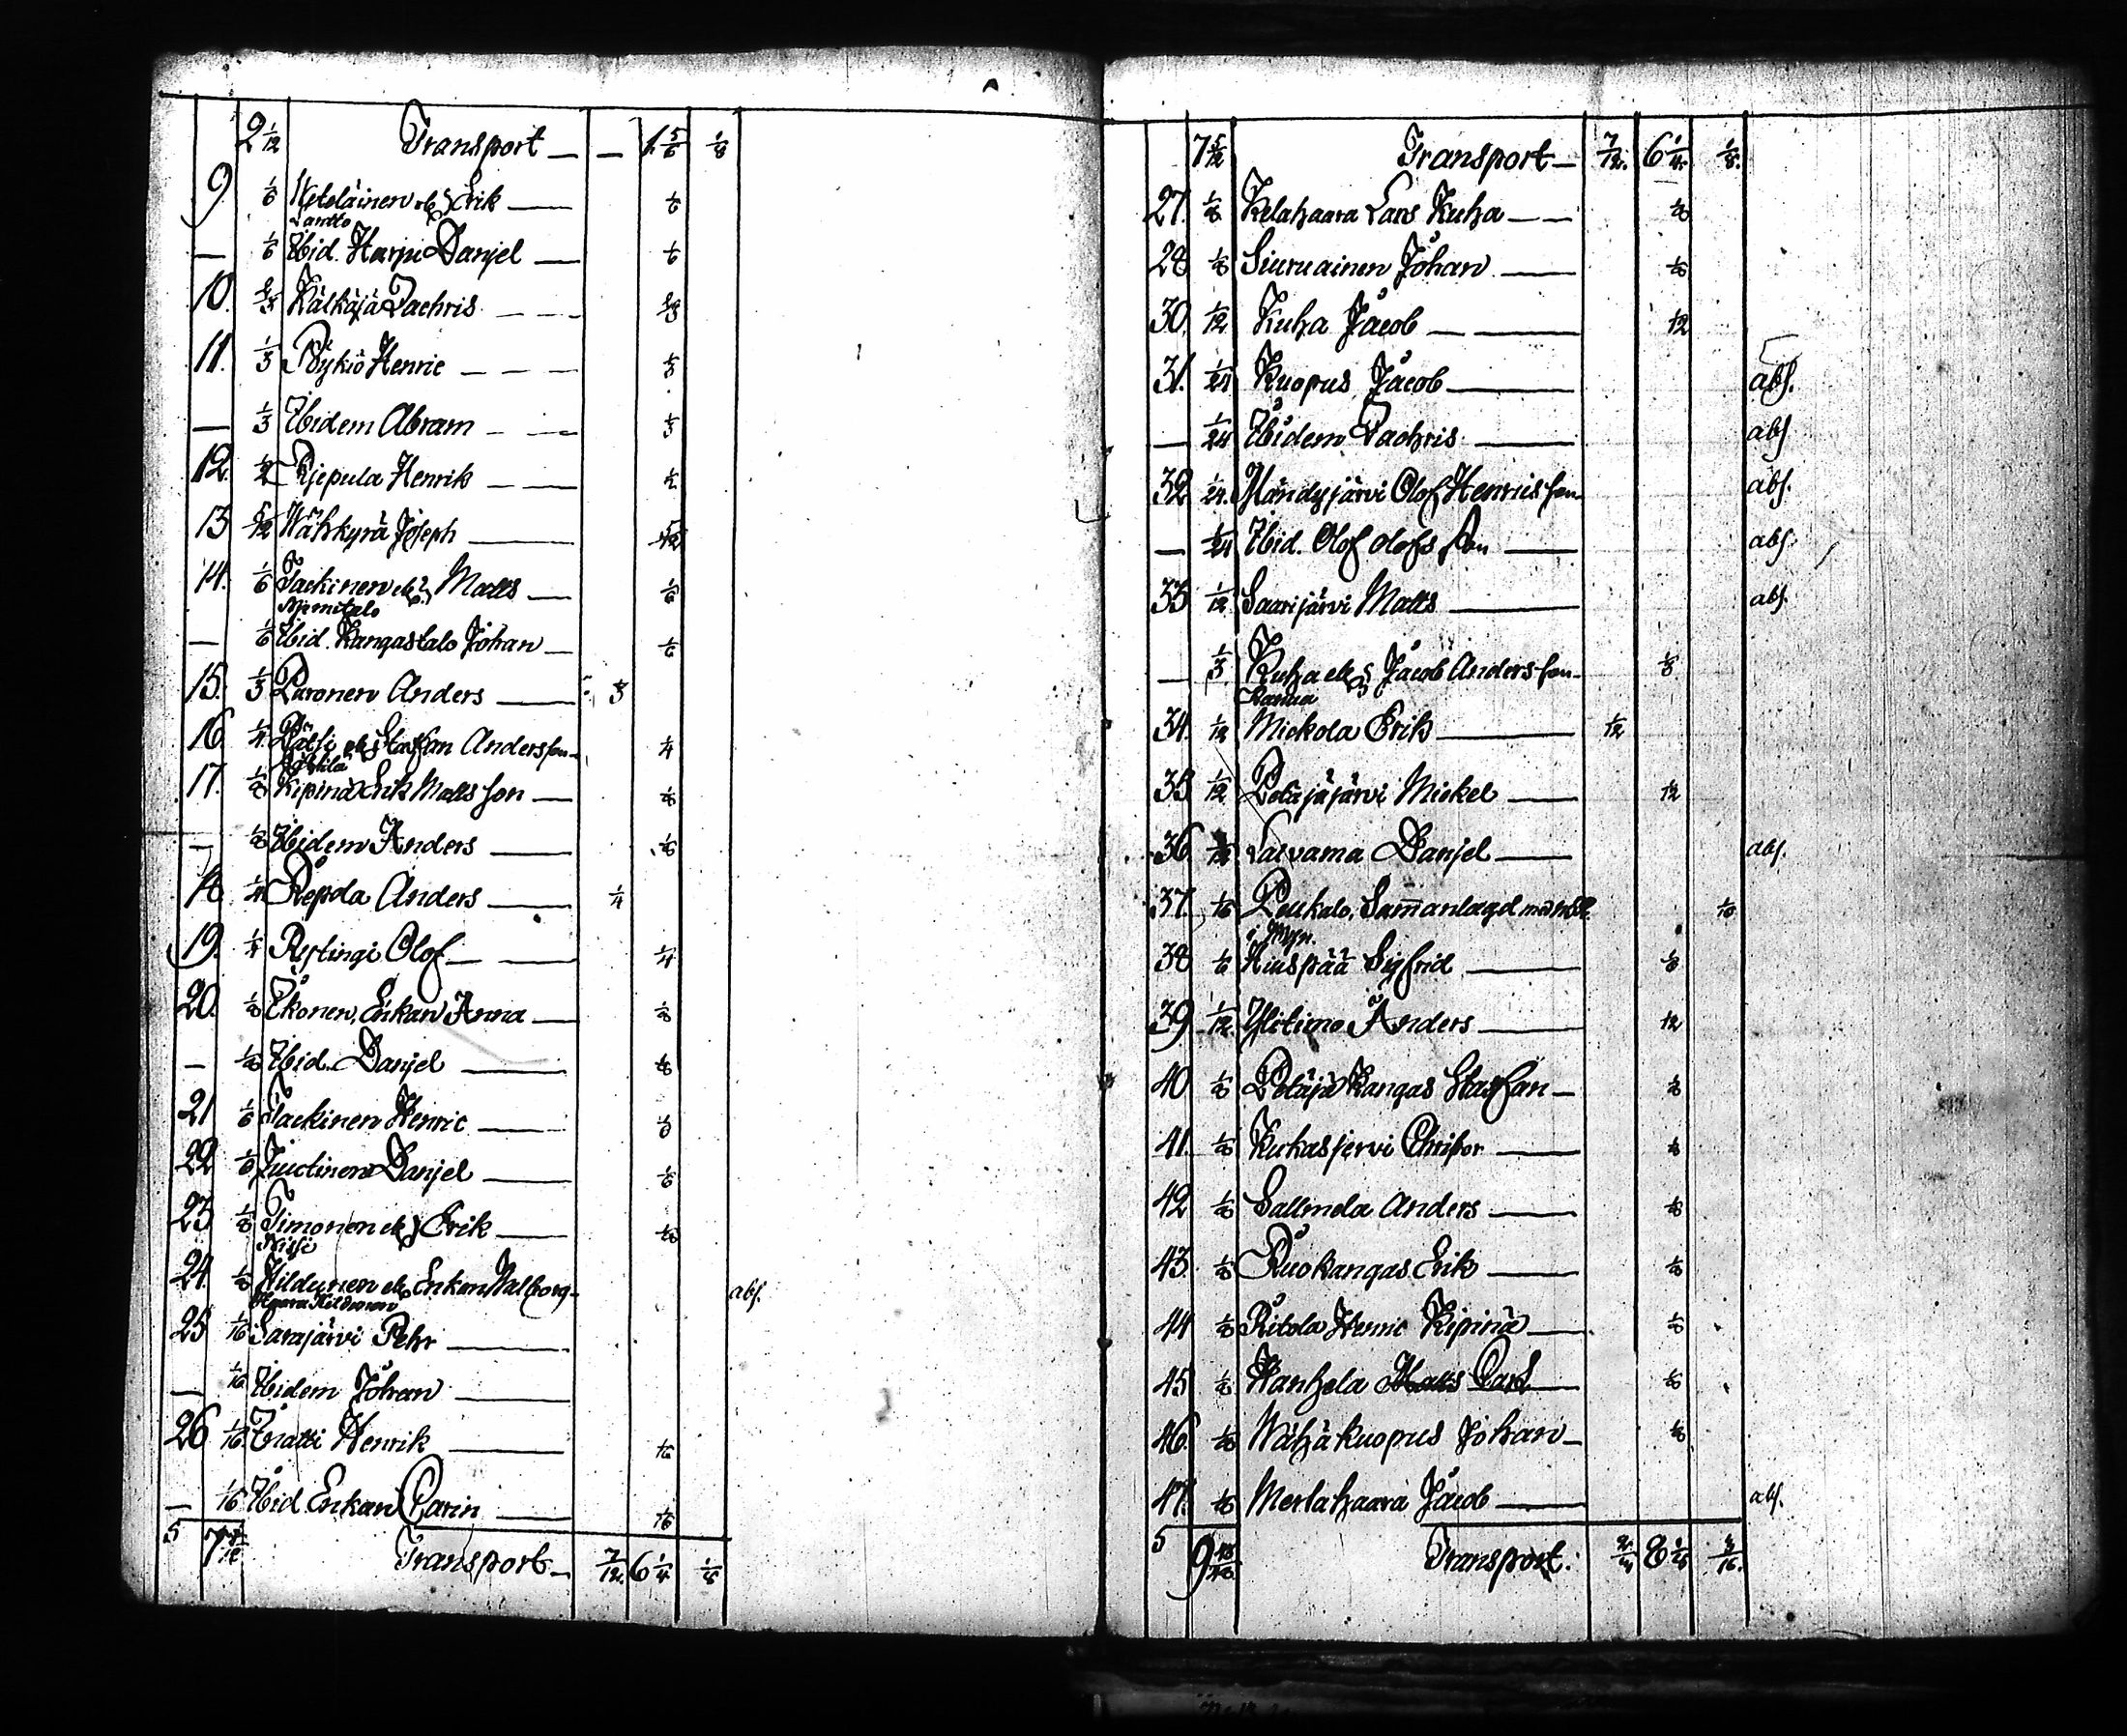 2 1/12 Transport — — 1 5/6 1/8
9. 1/6 Hyteläinen ell. Erik — 1/6
Lantto
— 1/6 Ibid. Harju Danjel — 1/6
10. 2/3 Kälkäjä Zachris — 2/3
11. 1/3 Böykiö Henric — 1/3
— 1/3 Ibidem Abram — 1/3
12. 1/2 Riepula Henrik — 1/2
13 5/12 Wähkyrä Joseph — 5/12
14. 1/6 Tackinen ell. Matts — 1/6
Niemitalo
— 1/6 Ibid. Kangastalo Johan — 1/6
15. 1/3 Paronen Anders — 1/3
16 1/4 Staffan Andersson 1/4
17. 1/8 Kipinä Erik Mattsson — 1/8
— 1/8 Ibidem Anders — 1/8
18 1/4 Repola Anders — 1/4
19. 1/4 Rystingi Olof — 1/4
20. 1/8 Ikonen, Enkan Anna — 1/8
— 1/8 Ibid. Danjel — 1/8
21 1/6 Tackinen Henric — 1/6
22 1/6 Juutinen Danjel — 1/6
23 1/8 Simonen ell. Erik — 1/8
Nissi
24. 1/8 Hildunen ell. Enkan Walborg — abs.
Haara Hildunen
25 1/16 Sarajärvi Pehr —
— 1/16 Ibidem Johan —
26 1/16 Tratti Henrik — 1/16
— 1/16 Ibid Enkan Carin — 1/16
5 7 5/12 Transport — 7/12. 6 1/4 1/8
7 5/12 Transport — 7/12. 6 1/4. 1/8.
27. 1/8 Kelahaara Lars Kuha — 1/8
28 1/8 Siuruainen Johan — 1/8
30. 1/12 Kuha Jacob — 1/12
31. 1/24 Kuopus Jacob — abs.
— 1/24 Ibidem Zachris — abs
32 1/24. Mändyjärvi Olof Henricsson abs.
— 1/24 Ibid. Olof Olofsson — abs.
33 1/12 Saarijärvi Matts — abs.
— 1/3 Kuha ell. Jacob Andersson 1/3
Ranua
34. 1/12 Mickola Erik — 1/12
35 1/12 Petäjäjärvi Mickel — 1/12
36 1/12 Saivama Danjel — abs.
37. 1/16 Peukalo, Sam̄anlagd med 1/16
38 1/6 Hiuspää Sigfrid — 1/6
39 1/12. Ylitimo Anders — 1/12
40 1/8 Petäjä Kangas Staffan — 1/8
41. 1/8 Kukasjervi Christer — 1/8
42 1/8 Sallmela Anders — 1/8
43. 1/8 Ruokangas Erik — 1/8
44 1/8 Ritola Henric Kipinä — 1/8
45 1/8 Wanhela Matts Carl — 1/8
46. 1/8 Wähäkuopus Johan — 1/8
47. 1/8 Merlahaara Jacob — abs.
5 9 Transport. 2/3 8 3/16.